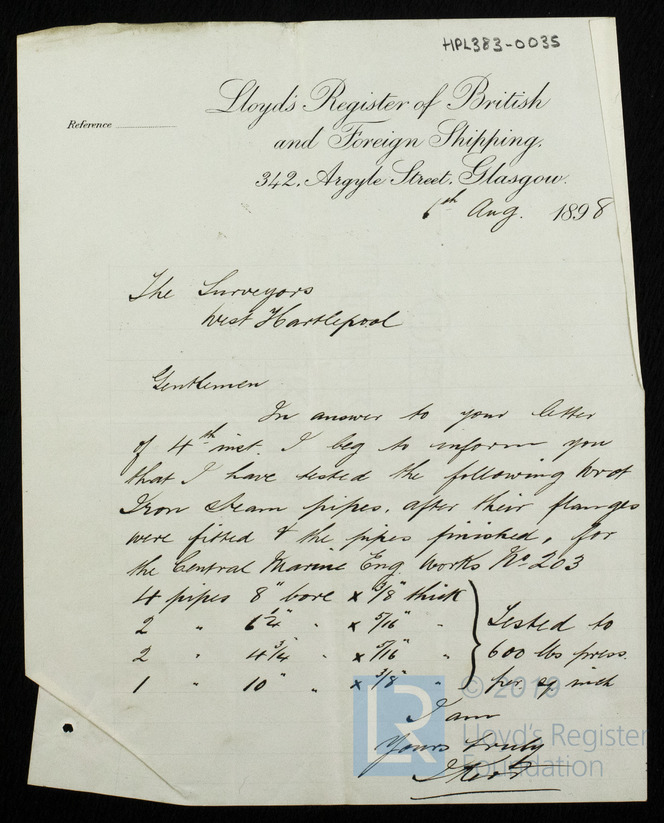 HPL383-0035
Lloyd's Register of British
Reference
and Foreign Shipping.
342, Argyle Street, Glasgow.
6th Aug. 1898
The Surveyors
West Hartlepool
Gentlemen
In answer to your letter
of 4th inst. I beg to inform you
that I have tested the following Wrot
Iron steam pipes, after their flanges
were fitted & the pipes finished, for
the Central Marine Eng. Works No 203
4 pipes 8" bore x 3/8" thick
2 " 6 1/4" " x 5/16" "
2 " 4 3/4" " x 5/16" "
1 " 10" " x 3/8" "
Tested to
600 lbs press.
per sq inch
I am
Yours truly
© 2019
LR
Lloyd's Register
Foundation